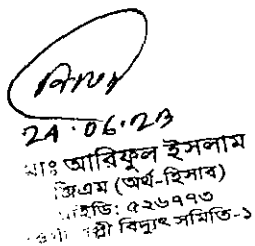 24.06.23
মোঃ আরিফুল ইসলাম
জিএম (অর্থ-হিসাব)
আইডি: ৫২৬৭৭৩
পল্লী বিদ্যুৎ সমিতি-১